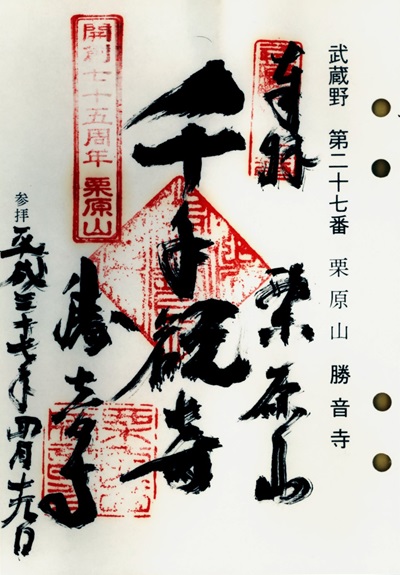 武蔵野　第二十七番　栗原山　勝音寺
奉拝　栗原山
千手観音
開創七十五周年　栗原山
勝音寺
参拝
平成二十七年四月十九日